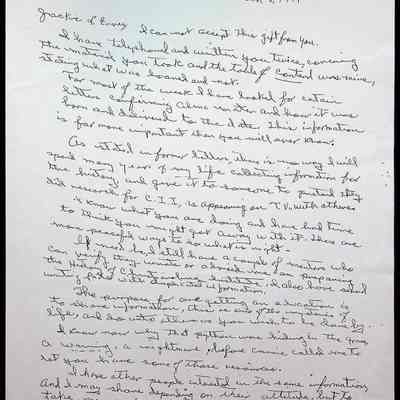 I can not accept this gift from you.
I have telephoned and written you twice, concerning
the material you took and the tools of
stating what was loaned and not.
For most of the week I have looked for certain
letters confirming and how it was
born and to the date. This information
is far more important than you will ever know.
As stated in former letters there is no way I will
spend many years of my life collecting information for
the history and give it to someone to pretend they
did research for C.I.I., is appearing on T.V. with others
I know what you are doing and have had time
to think you might get away with it. There are
more peaceful ways to do what is right.
If must be, I still have a couple of mentors who
can verify they wrote or advised me on preparing
the History of Institute, I also have asked
with information.
The purpose for one getting an education is
to share information, this is one of the mysteries of
life, and do unto others as you wish to be done by.
I know now why that python was hiding in the grass,
a warning, a nightmare, before Connie called me to
let you have some of those resources.
I have other people interested in the same information,
and I may share depending on their attitude, but to
take